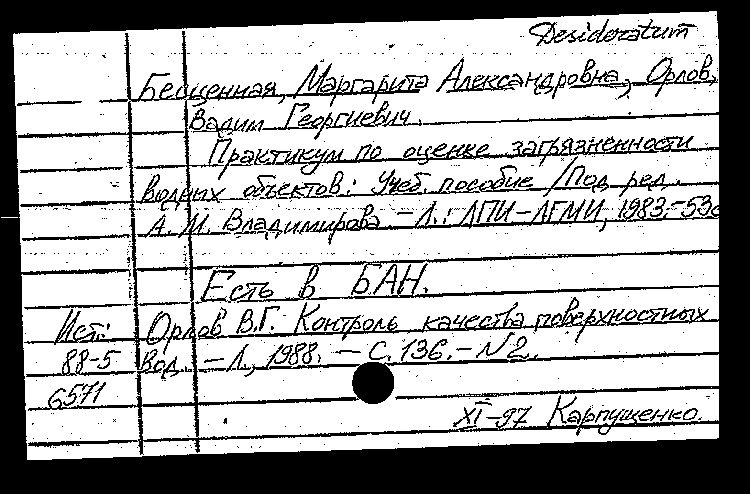 Desideratum
Бесценная, Маргарита Александровна, Орлов,
Вадим Георгиевич.
Практикум по оценке загрязненности
водных объектов: Учеб. пособие / Под ред.
А. М. Владимирова. – Л.: ЛПИ–ЛГМИ, 1983. – 53с
Есть в БАН.
Ист.: Орлов В.Г. Контроль качества поверхностных
88-5 вод. – Л., 1988. – С. 136. – N 2.
6571
XI-97 Карпущенко.